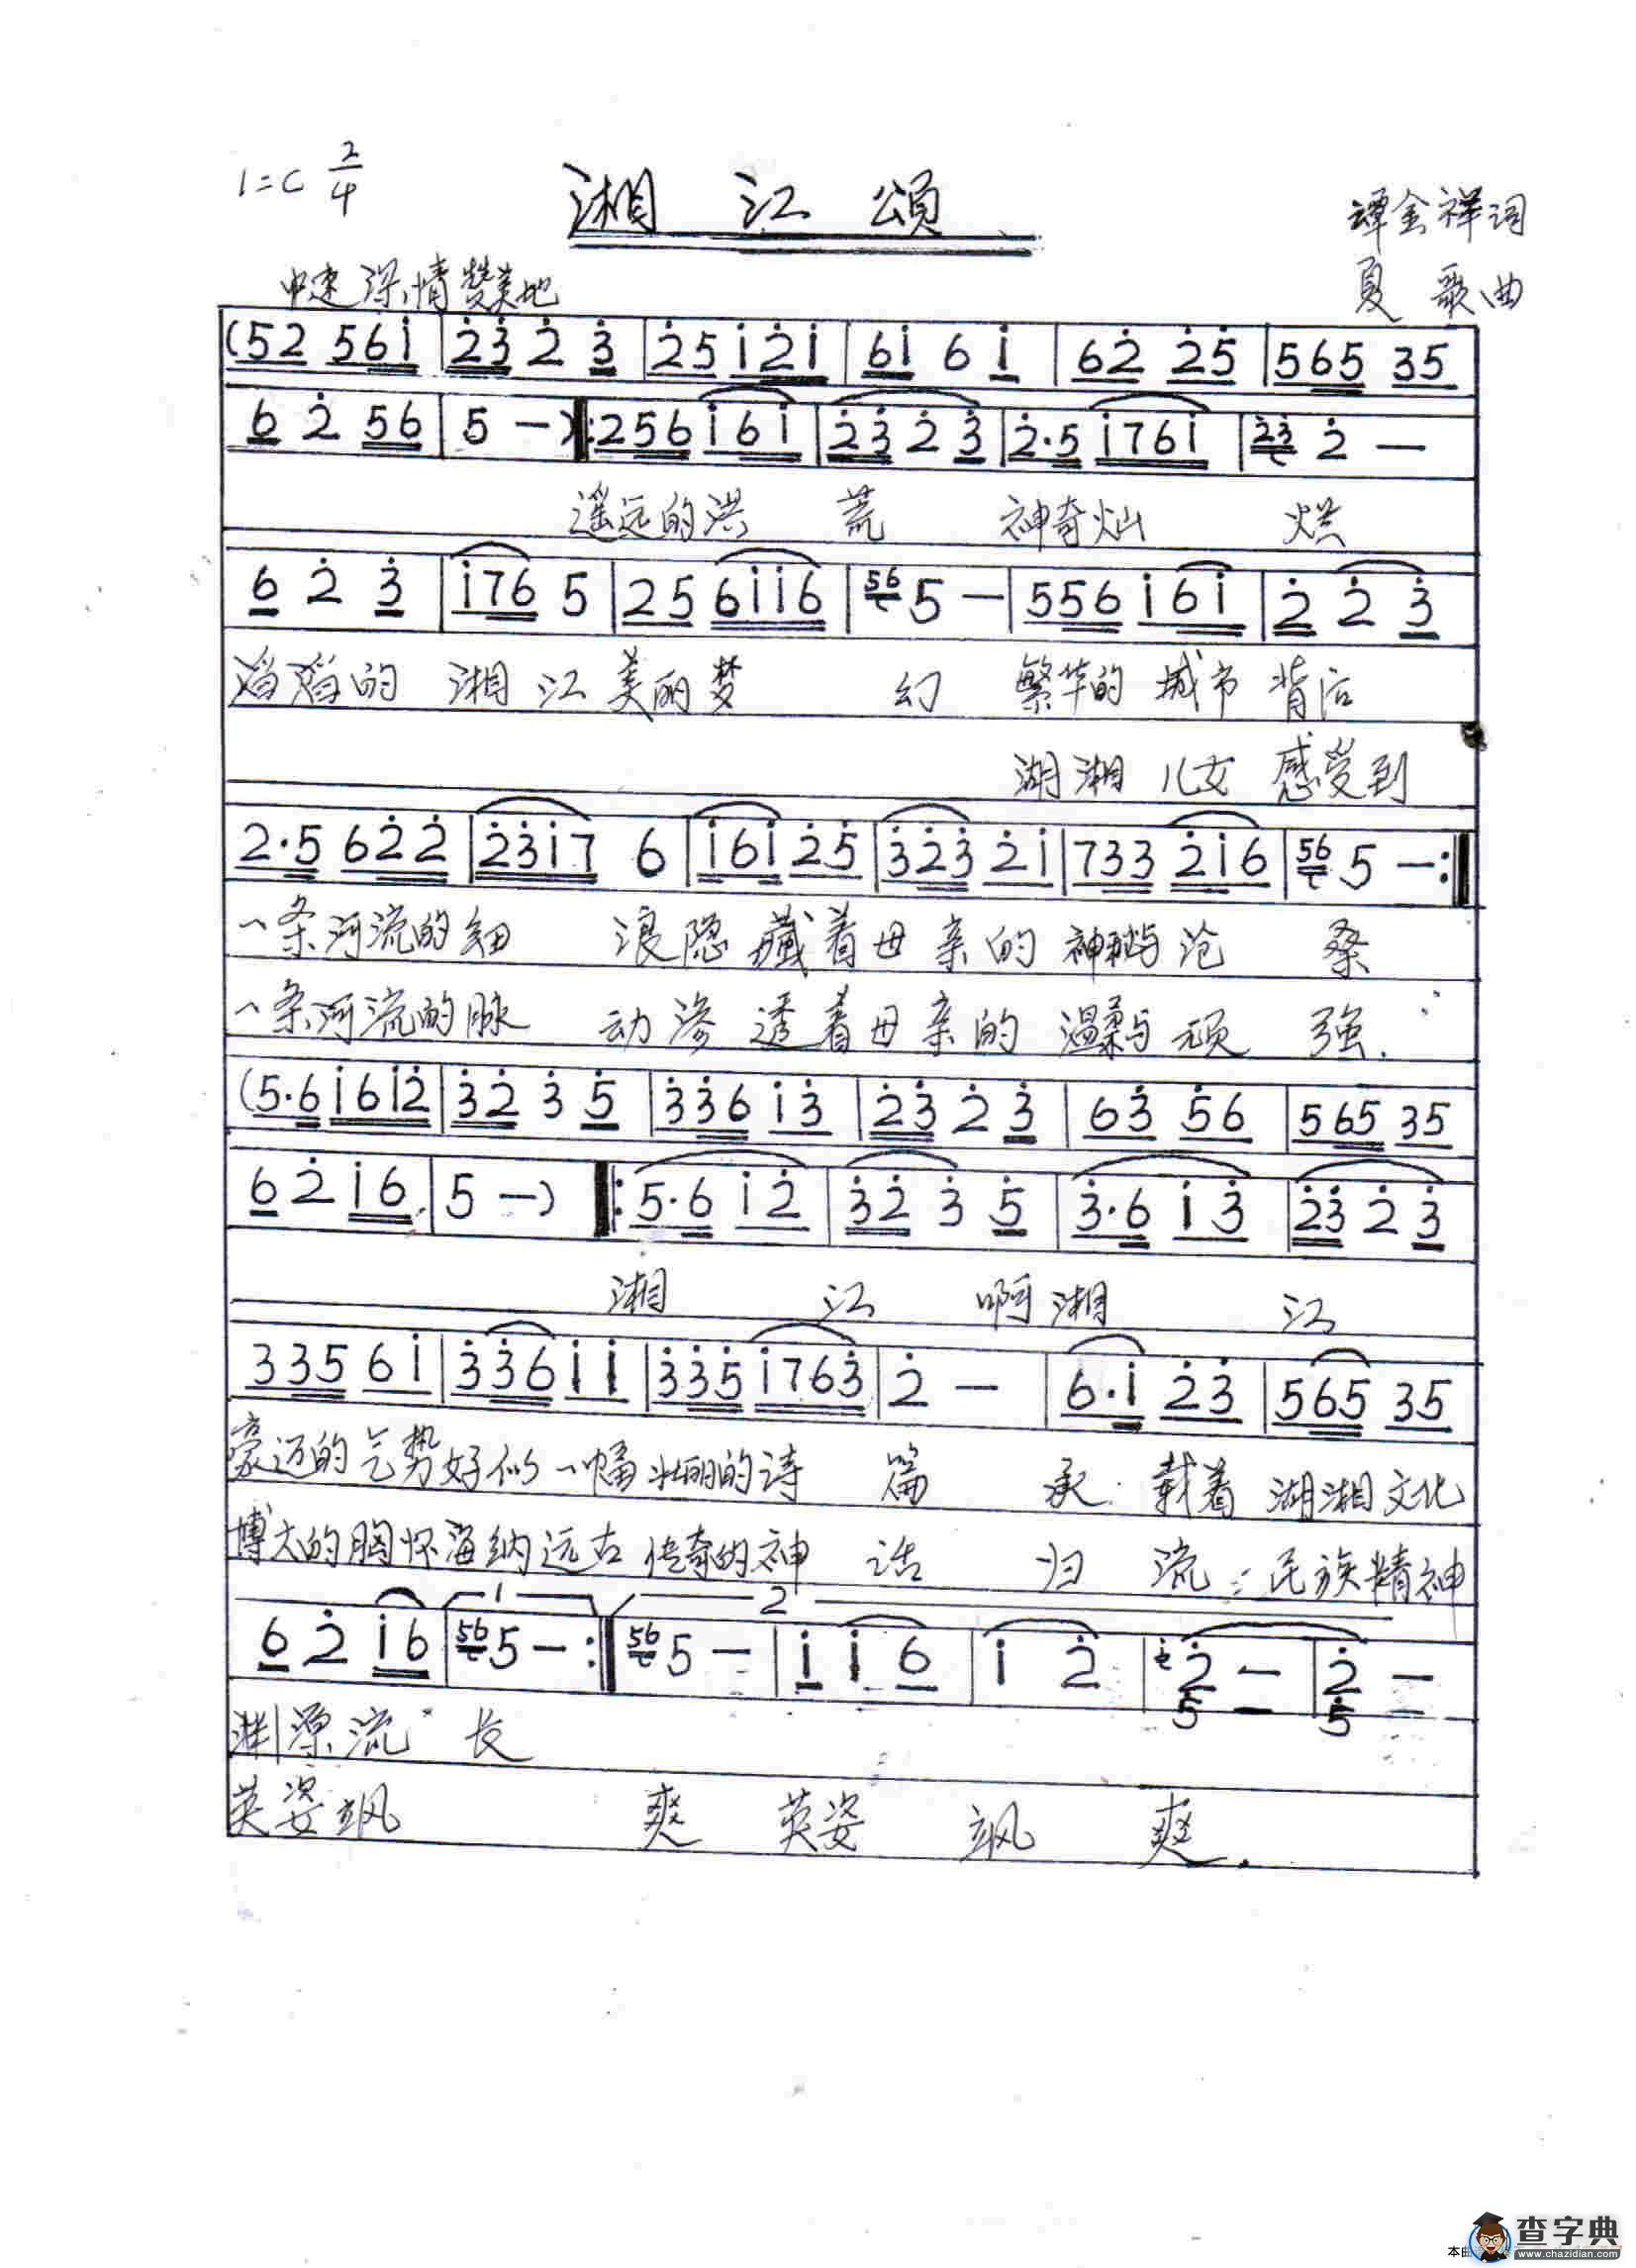 1=C 2/4
湘江颂
谭金祥词
夏歌曲
中速 深情赞美地
(52 56i | 23 2 3 | 25 i2i | 6i 6 i | 62 25 | 565 35
6 2 56 | 5 —) 𝄆 256 i6i | 23 2 3 | 2·5 i76i | 23 2 —
遥远的洪 荒 神奇灿 烂
6 2 3 | i76 5 | 25 6ii6 | 56 5 — | 556 i6i | 2 2 3
滔滔的 湘 江 美丽梦 幻 繁华的 城市 背后
湖湘 儿女 感受到
2·5 622 | 23i7 6 | i6i 25 | 323 2i | 733 2i6 | 56 5 — :‖
一条河流的细 浪隐 藏着母亲的 神秘与沧 桑
一条河流的脉 动渗 透着母亲的 温柔与顽 强.
(5·6 i6i2 | 32 3 5 | 336 i3 | 23 2 3 | 63 56 | 565 35
6 2 i6 | 5 —) ‖: 5·6 i2 | 32 3 5 | 3·6 i3 | 23 2 3
湘 江 啊湘 江
335 6i | 336 ii | 335 i763 | 2 — | 6·i 23 | 565 35
豪迈的气势好似一幅壮丽的诗 篇 承 载着 湖湘文化
博大的胸怀海纳远古 传奇的神 话 归 流 民族精神
1 2
6 2 i6 | 56 5 — :‖ 56 5 — | i i 6 | i 2 | i 2 — | 2 —
5 — 5 —
渊源流 长
英姿飒 爽 英姿 飒 爽.
查字典
www.chazidian.com
本曲